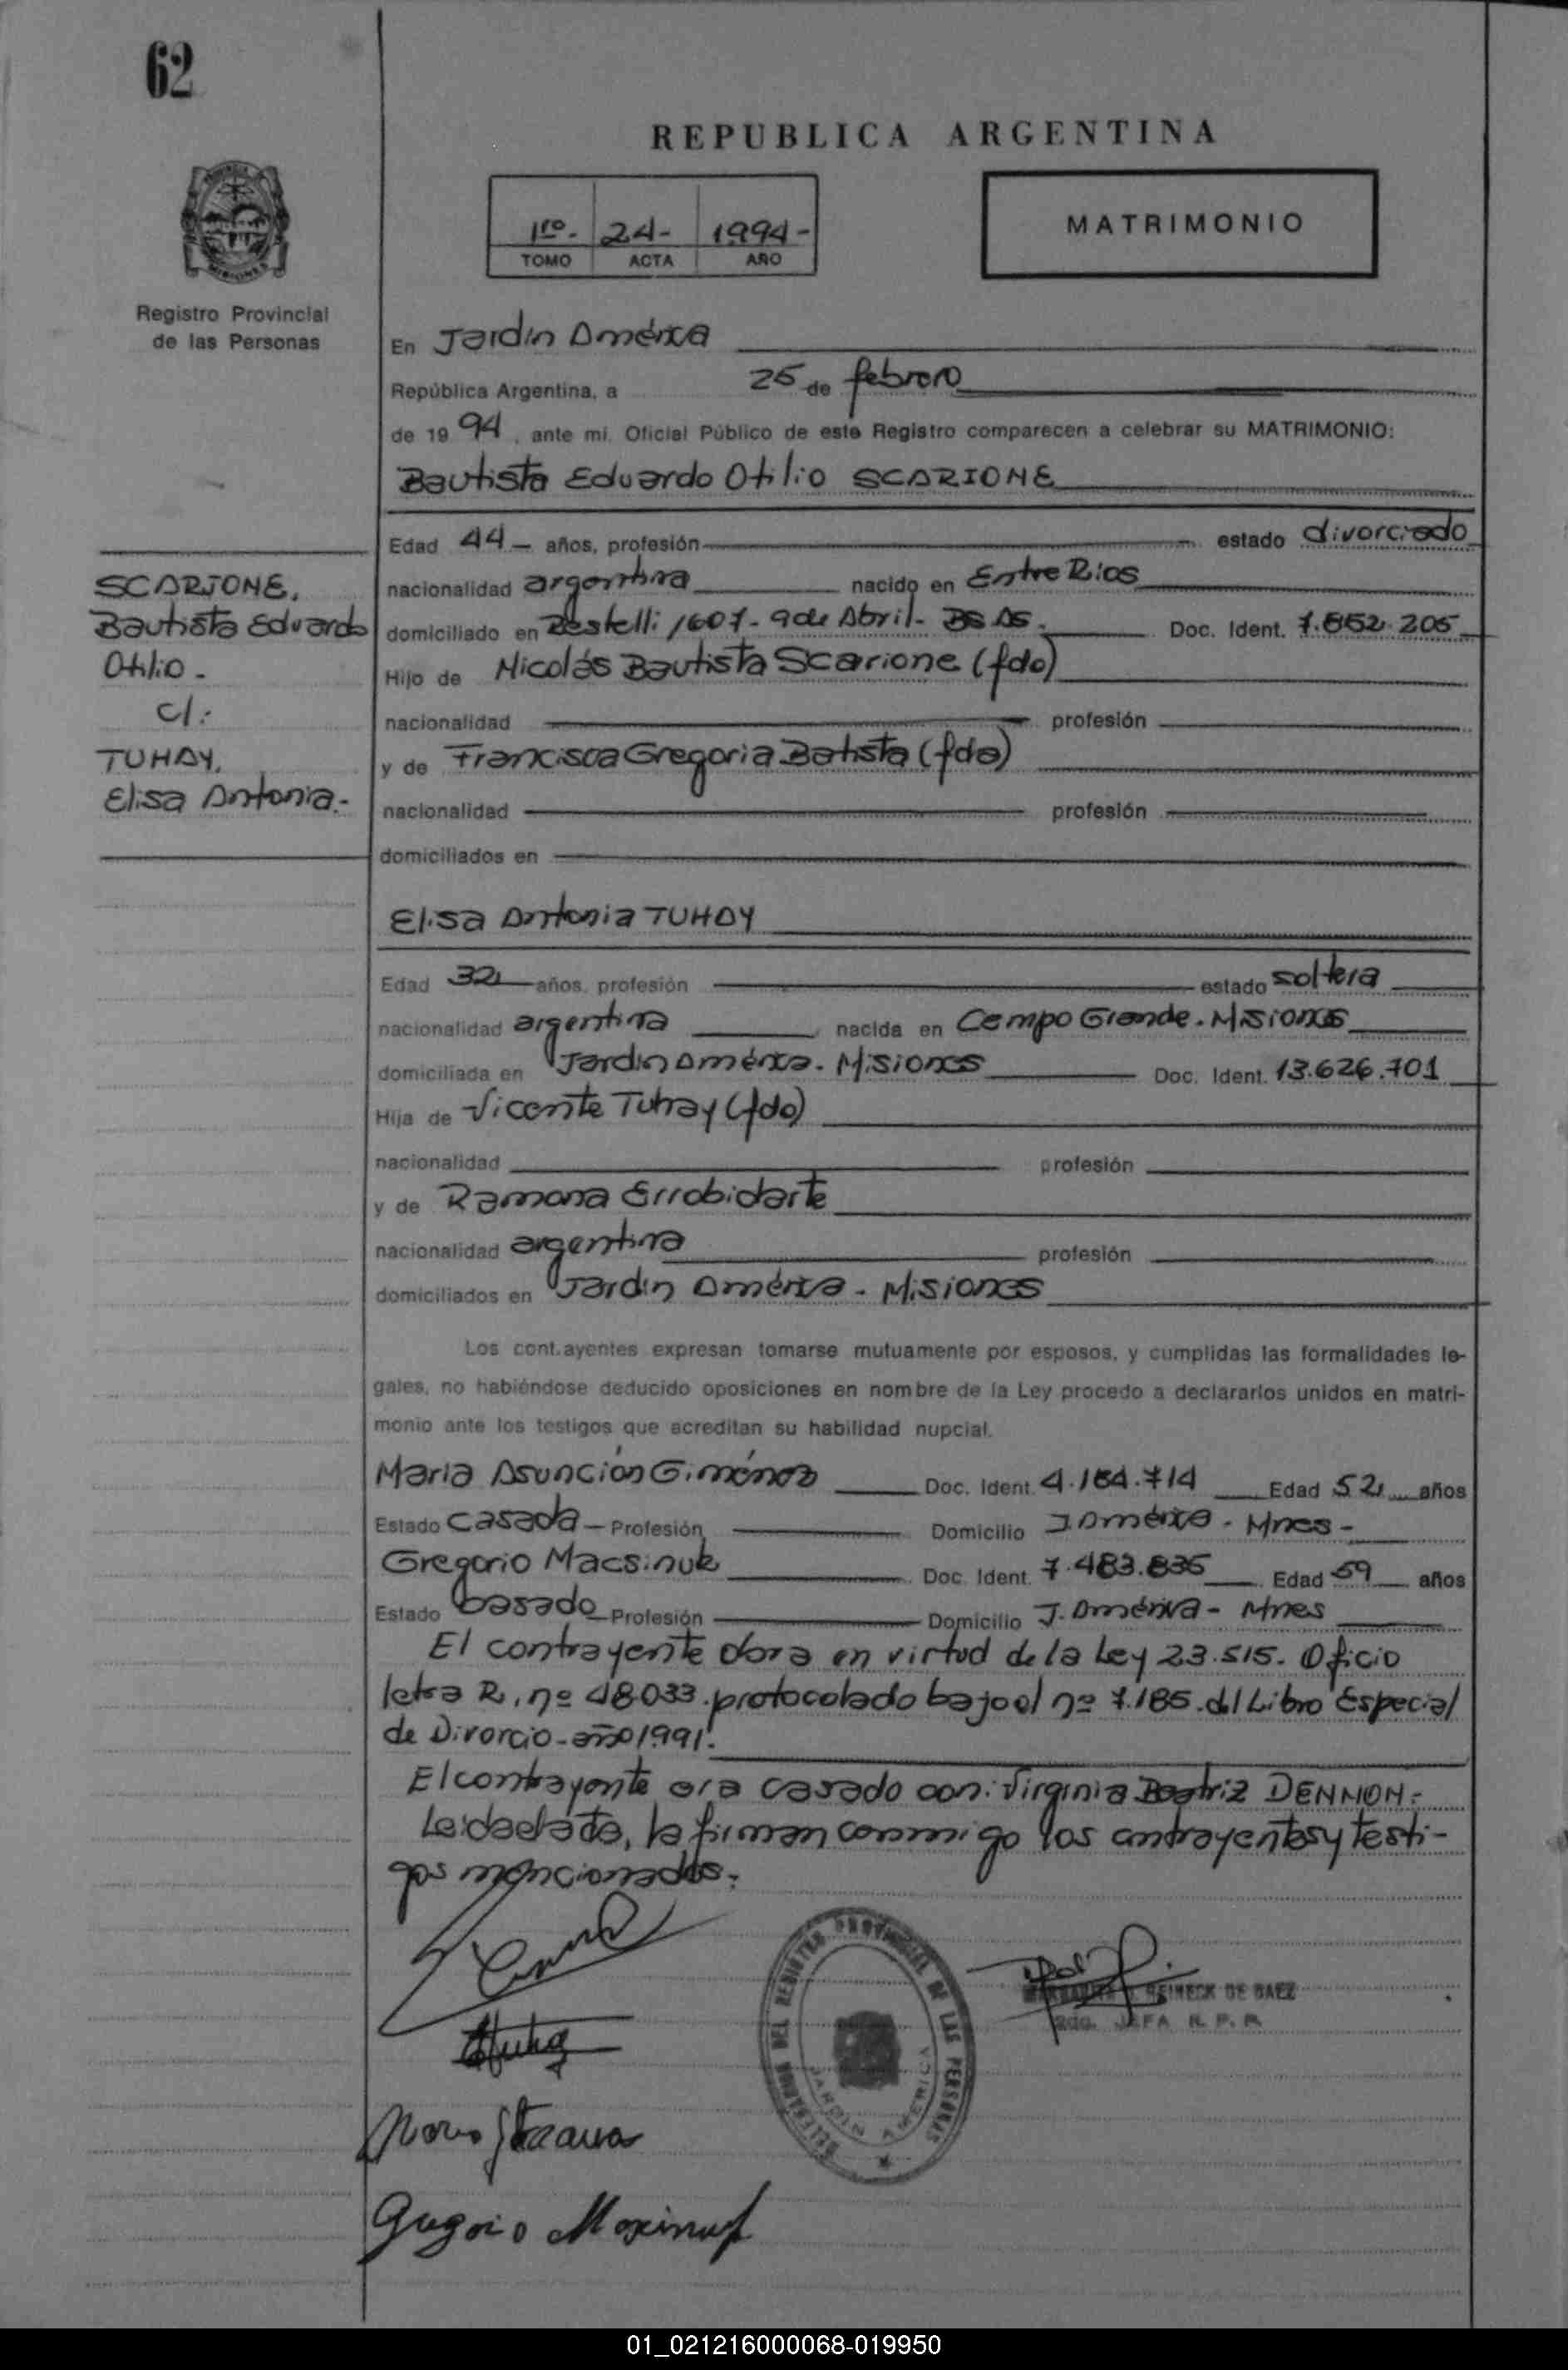 62
REPUBLICA ARGENTINA
1ro. 24- 1994-
TOMO ACTA AÑO
MATRIMONIO
Registro Provincial
de las Personas
En Jardín América
República Argentina, a 25 de febrero
de 1994, ante mi Oficial Público de este Registro comparecen a celebrar su MATRIMONIO:
Bautista Eduardo Otilio SCARIONE
Edad 44 años, profesión estado divorciado
nacionalidad argentina nacido en Entre Rios
domiciliado en 1607 - 9 de Abril - BS AS. Doc. Ident. 7.852.205
Hijo de Nicolás Bautista Scarione (fdo)
nacionalidad profesión
y de Francisca Gregoria Batista (fda)
nacionalidad profesión
domiciliados en
SCARIONE,
Bautista Eduardo
Otilio -
c/:
TUHAY,
Elisa Antonia.-
Elisa Antonia TUHAY
Edad 32 años, profesión estado soltera
nacionalidad argentina nacida en Campo Grande. Misiones
domiciliada en Jardín América. Misiones Doc. Ident. 13.626.701
Hija de Vicente Tuhay (fdo)
nacionalidad profesión
y de Ramona Errobidarte
nacionalidad argentina profesión
domiciliados en Jardín América - Misiones
Los cont.ayentes expresan tomarse mutuamente por esposos, y cumplidas las formalidades le-
gales, no habiéndose deducido oposiciones en nombre de la Ley procedo a declararlos unidos en matri-
monio ante los testigos que acreditan su habilidad nupcial.
Maria Asunción Giménez Doc. Ident. 4.184.714 Edad 52 años
Estado casada - Profesión Domicilio J. América - Mnes -
Gregorio Macsinuk Doc. Ident. 7.483.835 Edad 59 años
Estado casado Profesión Domicilio J. América - Mnes
El contrayente obra en virtud de la Ley 23.515. Oficio
letra R, nº 48033. protocolado bajo el nº 7.185. del Libro Especial
de Divorcio - año 1991.
El contrayente era casado con: Virginia Beatriz DENNON.
Leida el acta, la firman conmigo los contrayentes y testi-
gos mencionados.
DELEGACION DEL REGISTRO PROVINCIAL DE LAS PERSONAS
JARDIN AMERICA
REINECK DE BAEZ
2da. JEFA R. P. P.
01_021216000068-019950